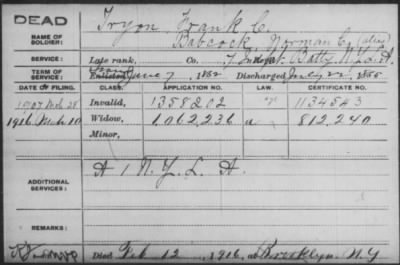 DEAD
Tryon, Frank C.
NAME OF SOLDIER:
Babcock, Norman C. (alias)
SERVICE:
Late rank, Co. Batty N.Y. L. A.
TERM OF SERVICE:
Enlisted June 7, 1862 Discharged July 22, 1865
DATE OF FILING. CLASS. APPLICATION NO. LAW. CERTIFICATE NO.
1907 Mch 28 Invalid, 1358202 1134543
1916 Mch 10 Widow, 1,062,236 a 812,240
Minor,
ADDITIONAL SERVICES:
A 1 N.Y. L. A.
REMARKS:
Died Feb 12, 1916, at Brooklyn N.Y